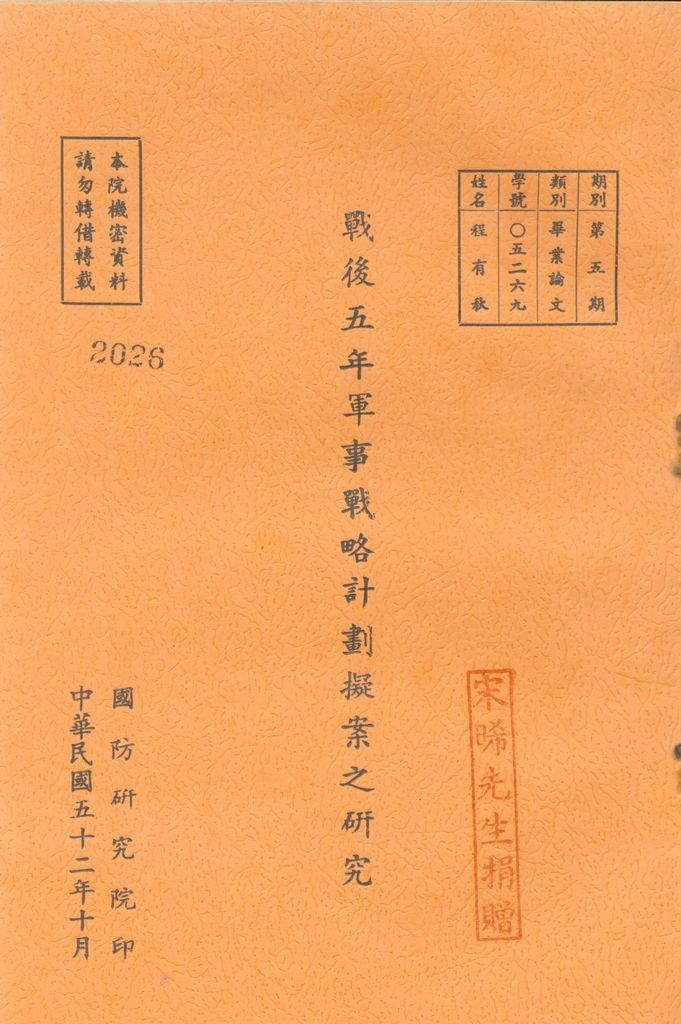 期別 第五期
類別 畢業論文
學號 〇五二六九
姓名 程有秋
戰後五年軍事戰略計劃擬案之研究
本院機密資料
請勿轉借轉載
2026
宋晞先生捐贈
國防研究院印
中華民國五十二年十月